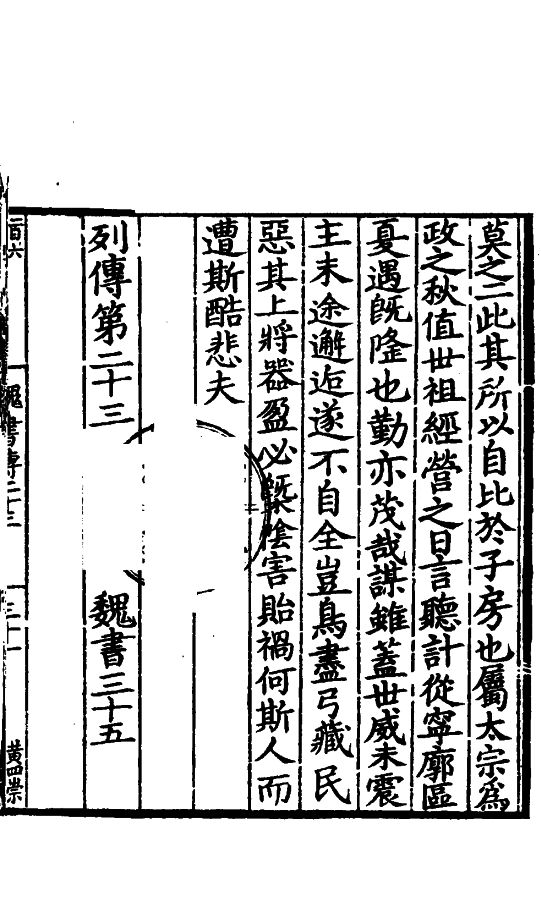 莫之二此其所以自比於子房也屬太宗爲
政之秋值世祖經營之日言聽計從寧廓區
夏遇旣隆也勤亦茂哉謀雖蓋世威未震
主末途邂逅遂不自全豈鳥盡弓藏民
惡其上將器盈必槩陰害貽禍何斯人而
遭斯酷悲夫
列傳第二十三 魏書三十五
魏書傳二十三
三十一